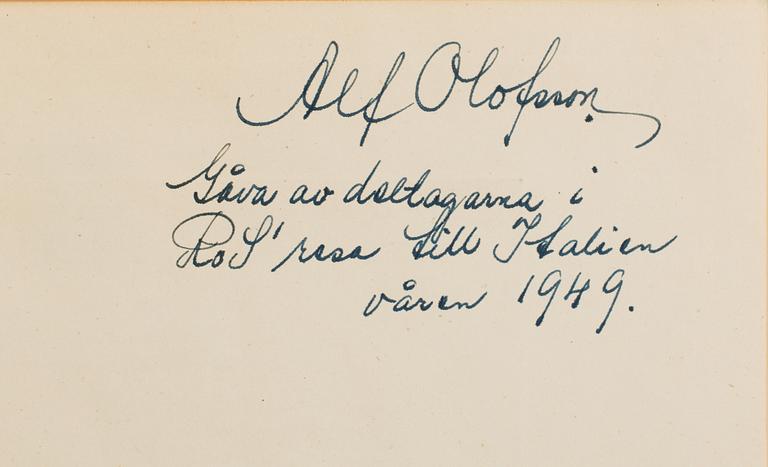 Alf Olofsson.
Gåva av deltagarna i
RoS' resa till Italien
våren 1949.